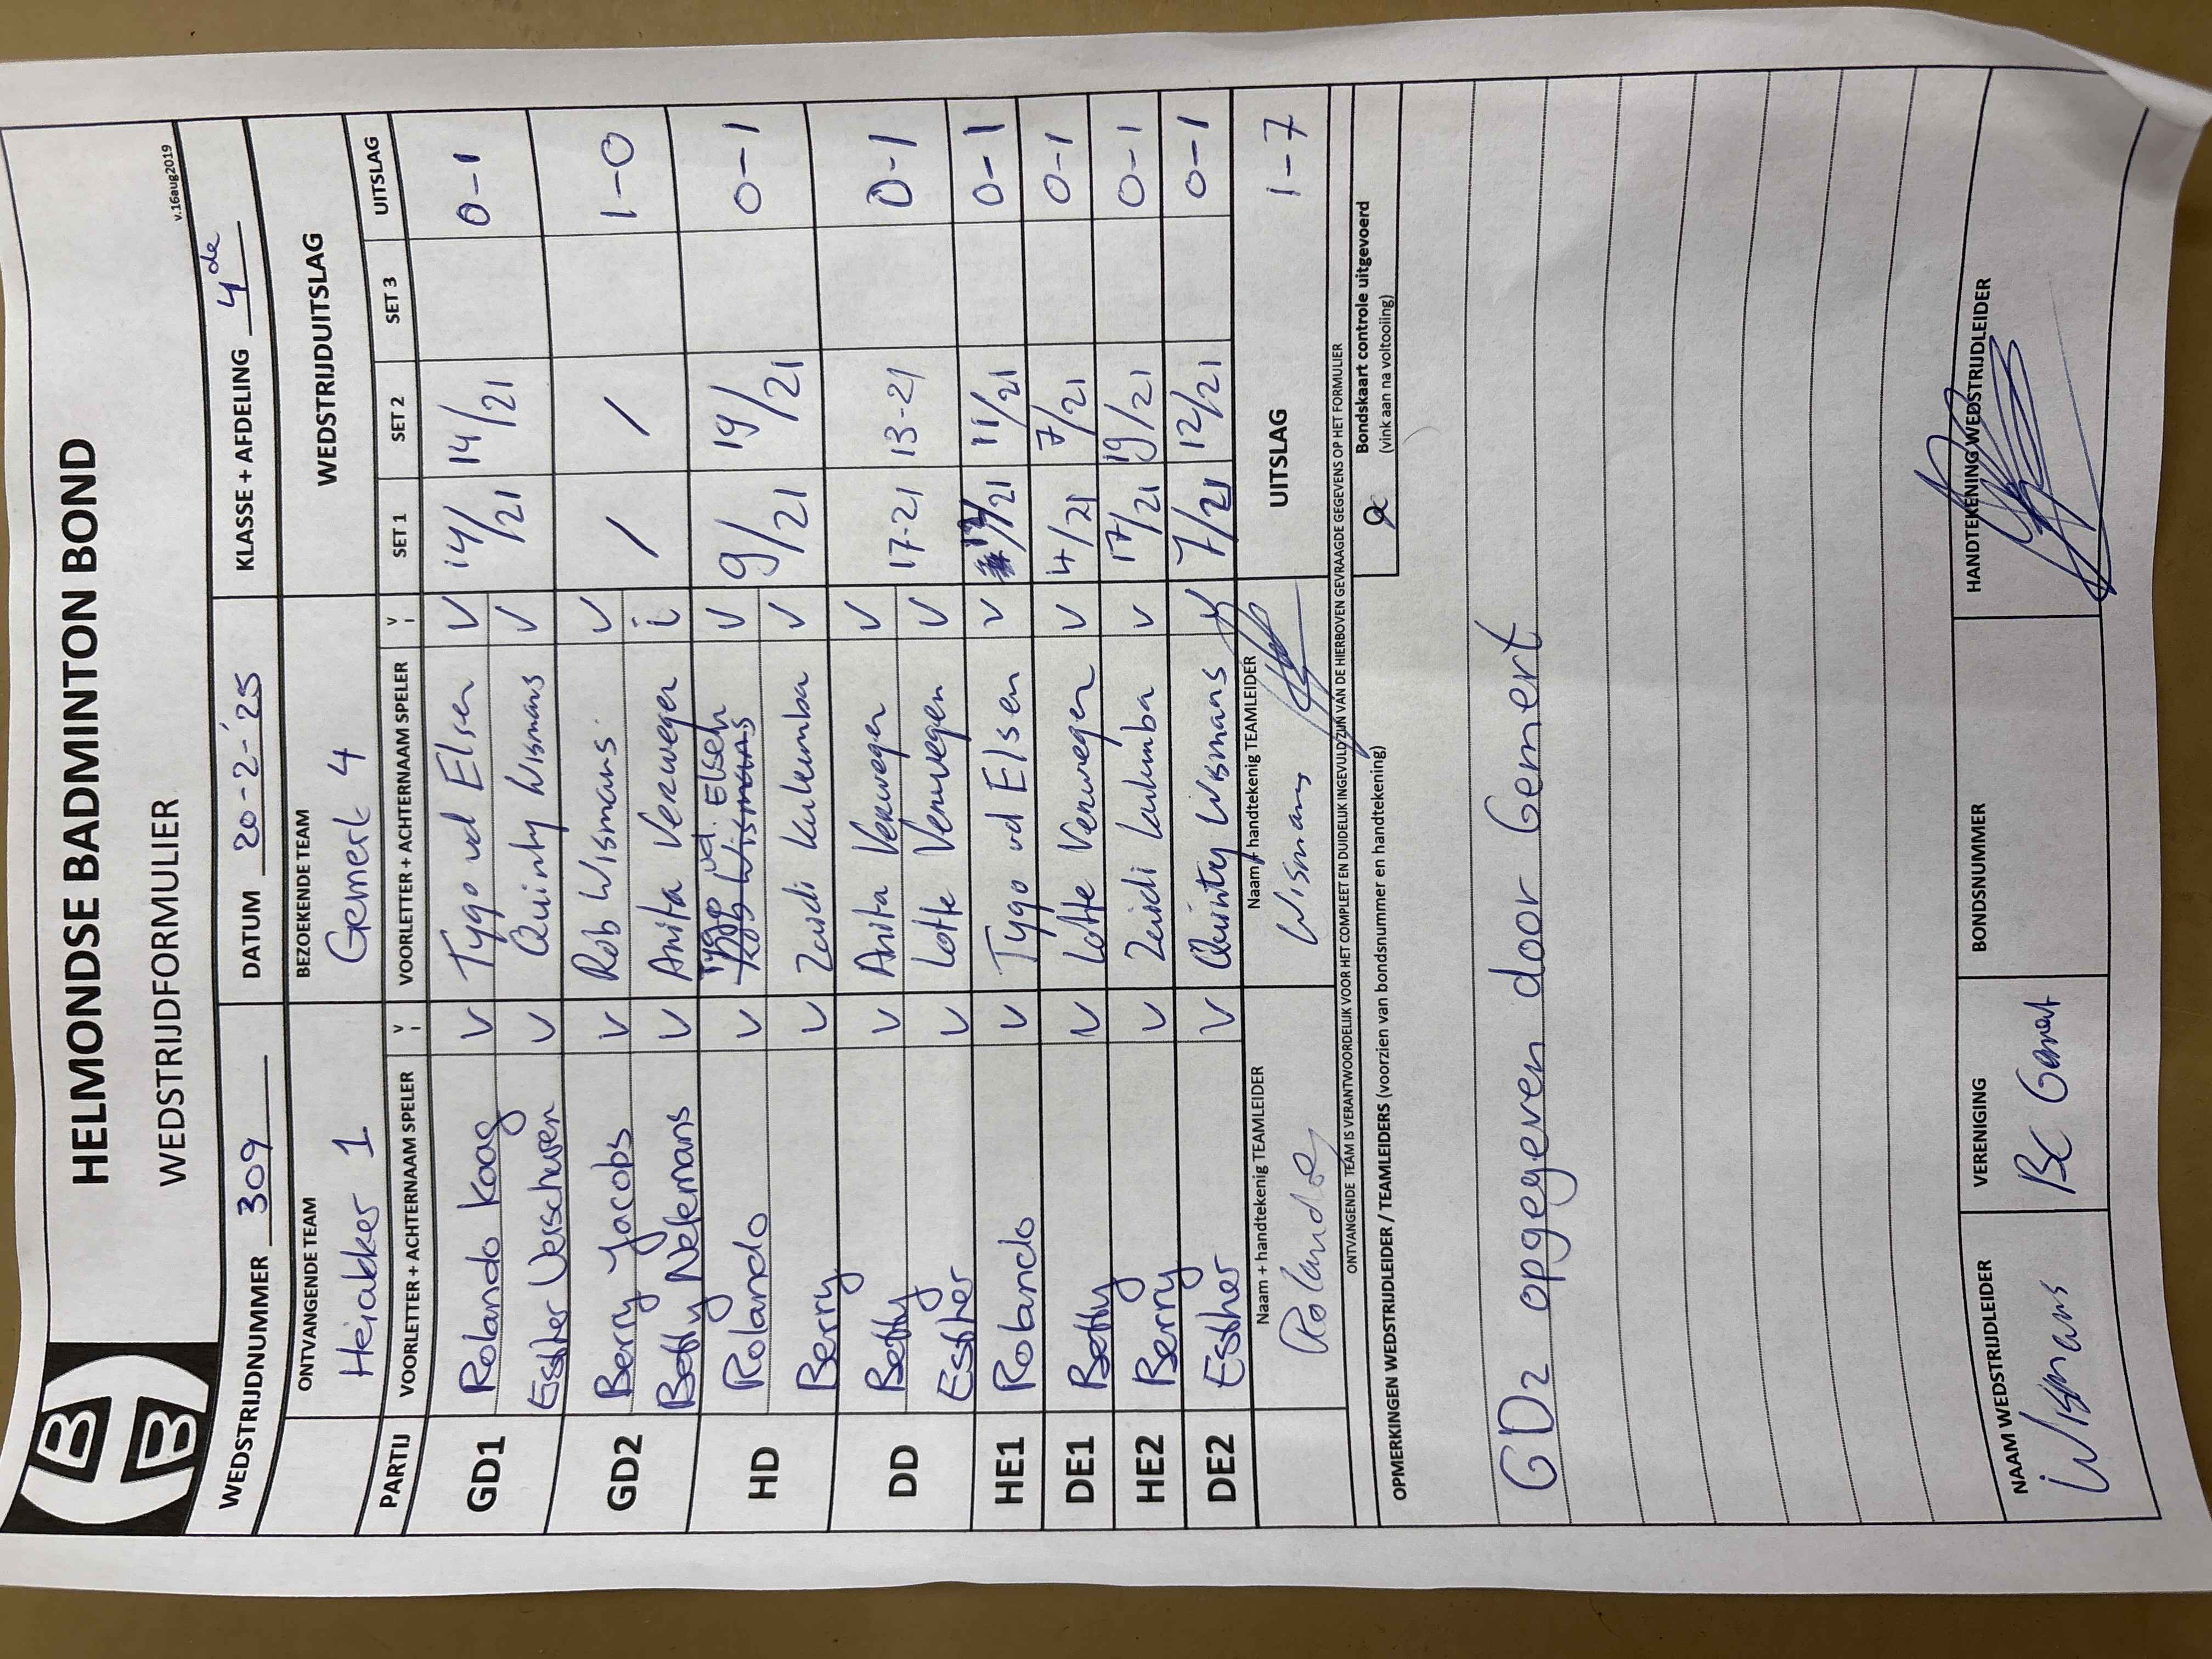 HBB
HELMONDSE BADMINTON BOND
WEDSTRIJDFORMULIER
v.16aug2019
WEDSTRIJDNUMMER 309 DATUM 20-2-'25 KLASSE + AFDELING 4de
ONTVANGENDE TEAM BEZOEKENDE TEAM WEDSTRIJDUITSLAG
Heiakker 1 Gemert 4
PARTIJ VOORLETTER + ACHTERNAAM SPELER V I VOORLETTER + ACHTERNAAM SPELER V I SET 1 SET 2 SET 3 UITSLAG
GD1 Rolando Koag V Tygo vd Elsen V 14/21 14/21 0-1
Esther Verschuren V Quinty Wismans V
GD2 Berry Jacobs V Rob Wismans V / / 1-0
Betty Nelemans V Anita Verwegen i
HD Rolando V Tygo vd. Elsen V 9/21 19/21 0-1
Berry V Zuidi V
DD Betty V Anita Verwegen V 17-21 13-21 0-1
Esther V Lotte Verwegen V
HE1 Rolando V Tygo vd Elsen V /21 11/21 0-1
DE1 Betty V Lotte Verwegen V 4/21 7/21 0-1
HE2 Berry V V 17/21 19/21 0-1
DE2 Esther V Quinty Wismans V 7/21 12/21 0-1
Naam + handtekenig TEAMLEIDER Naam + handtekenig TEAMLEIDER UITSLAG 1-7
Rolando Wismans
ONTVANGENDE TEAM IS VERANTWOORDELIJK VOOR HET COMPLEET EN DUIDELIJK INGEVULD ZIJN VAN DE HIERBOVEN GEVRAAGDE GEGEVENS OP HET FORMULIER
OPMERKINGEN WEDSTRIJDLEIDER / TEAMLEIDERS (voorzien van bondsnummer en handtekening)
Bondskaart controle uitgevoerd
(vink aan na voltooiing)
GD2 opgegeven door Gemert
NAAM WEDSTRIJDLEIDER VERENIGING BONDSNUMMER HANDTEKENING WEDSTRIJDLEIDER
Wismans BC Gemert